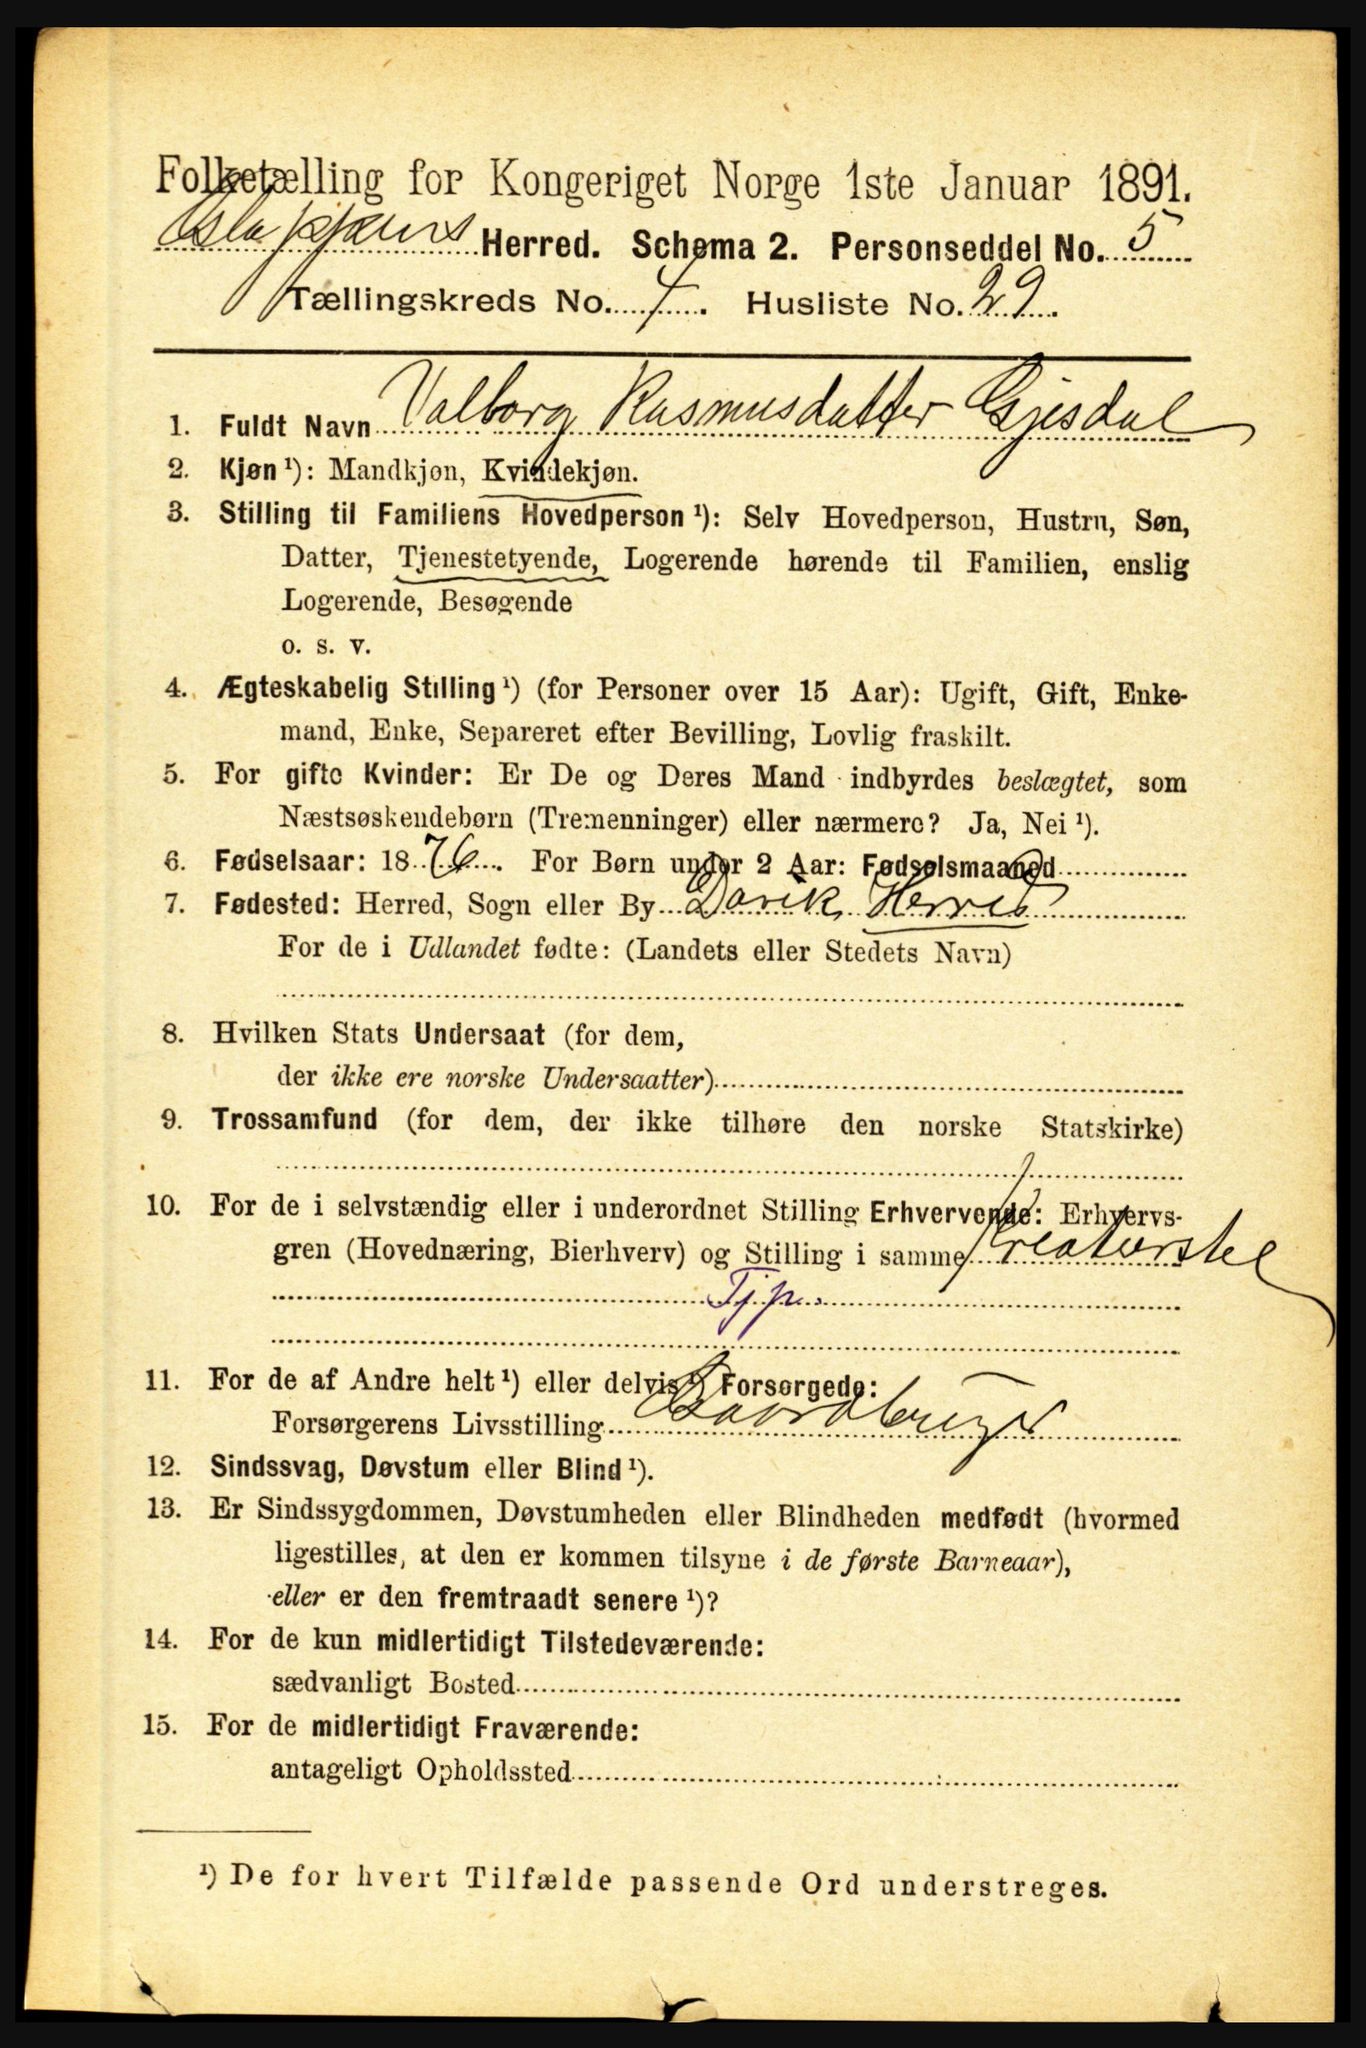 Folketælling for Kongeriget Norge 1ste Januar 1891.
Gloppens Herred. Schema 2. Personseddel No. 5
Tællingskreds No. 4. Husliste No. 29.
1. Fuldt Navn Valborg Rasmusdatter Gjesdal
2. Kjøn ¹): Mandkjøn, Kvindekjøn.
3. Stilling til Familiens Hovedperson ¹): Selv Hovedperson, Hustru, Søn,
Datter, Tjenestetyende, Logerende hørende til Familien, enslig
Logerende, Besøgende
o. s. v.
4. Ægteskabelig Stilling ¹) (for Personer over 15 Aar): Ugift, Gift, Enke-
mand, Enke, Separeret efter Bevilling, Lovlig fraskilt.
5. For gifte Kvinder: Er De og Deres Mand indbyrdes beslægtet, som
Næstsøskendebørn (Tremenninger) eller nærmere? Ja, Nei ¹).
6. Fødselsaar: 1876. For Børn under 2 Aar: Fødselsmaaned
7. Fødested: Herred, Sogn eller By Davik Herred
For de i Udlandet fødte: (Landets eller Stedets Navn)
8. Hvilken Stats Undersaat (for dem,
der ikke ere norske Undersaatter)
9. Trossamfund (for dem, der ikke tilhøre den norske Statskirke)
10. For de i selvstændig eller i underordnet Stilling Erhvervende: Erhvervs-
gren (Hovednæring, Bierhverv) og Stilling i samme Kreaturstel
Tjp.
11. For de af Andre helt ¹) eller delvis ¹) Forsørgede:
Forsørgerens Livsstilling Gaardbruger
12. Sindssvag, Døvstum eller Blind ¹).
13. Er Sindssygdommen, Døvstumheden eller Blindheden medfødt (hvormed
ligestilles, at den er kommen tilsyne i de første Barneaar),
eller er den fremtraadt senere ¹)?
14. For de kun midlertidigt Tilstedeværende:
sædvanligt Bosted
15. For de midlertidigt Fraværende:
antageligt Opholdssted
¹) De for hvert Tilfælde passende Ord understreges.